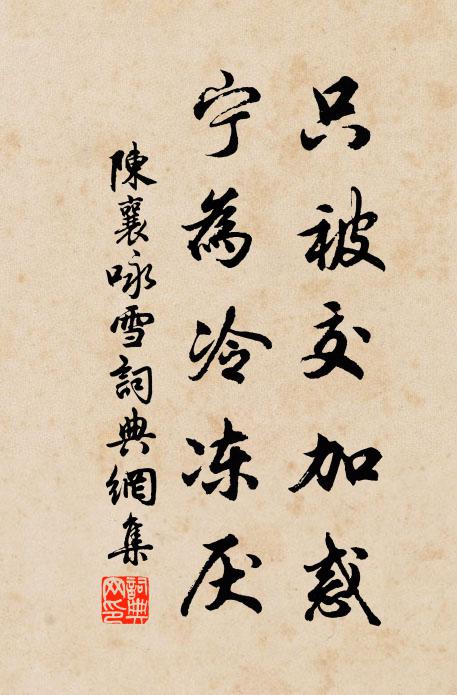 只被交加惑
宁為冷冻厌
陳襄咏雪詞典網集
詞典網印